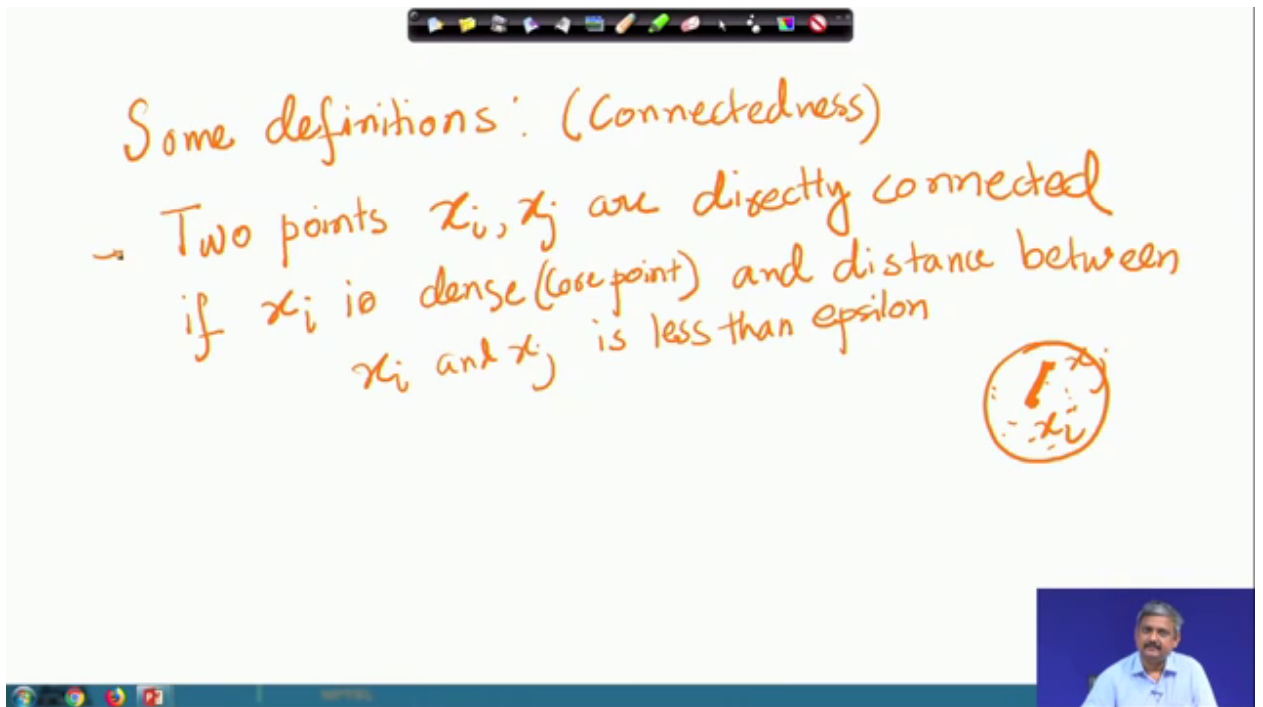 Some definitions: (Connectedness)
→ Two points xi, xj are directly connected
if xi is dense (core point) and distance between
xi and xj is less than epsilon
xj
xi